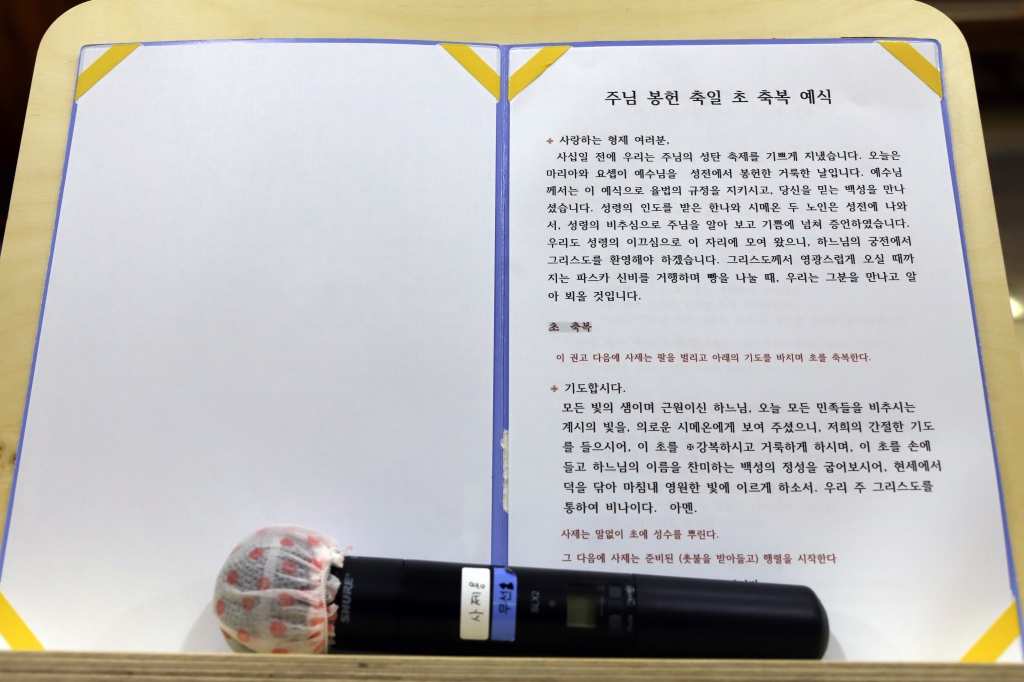 주님 봉헌 축일 초 축복 예식
✢ 사랑하는 형제 여러분,
사십일 전에 우리는 주님의 성탄 축제를 기쁘게 지냈습니다. 오늘은
마리아와 요셉이 예수님을 성전에서 봉헌한 거룩한 날입니다. 예수님
께서는 이 예식으로 율법의 규정을 지키시고, 당신을 믿는 백성을 만나
셨습니다. 성령의 인도를 받은 한나와 시메온 두 노인은 성전에 나와
서, 성령의 비추심으로 주님을 알아 보고 기쁨에 넘쳐 증언하였습니다.
우리도 성령의 이끄심으로 이 자리에 모여 왔으니, 하느님의 궁전에서
그리스도를 환영해야 하겠습니다. 그리스도께서 영광스럽게 오실 때까
지는 파스카 신비를 거행하며 빵을 나눌 때, 우리는 그분을 만나고 알
아 뵈올 것입니다.
초 축복
이 권고 다음에 사제는 팔을 벌리고 아래의 기도를 바치며 초를 축복한다.
✢ 기도합시다.
모든 빛의 샘이며 근원이신 하느님, 오늘 모든 민족들을 비추시는
계시의 빛을, 의로운 시메온에게 보여 주셨으니, 저희의 간절한 기도
를 들으시어, 이 초를 ✠강복하시고 거룩하게 하시며, 이 초를 손에
들고 하느님의 이름을 찬미하는 백성의 정성을 굽어보시어, 현세에서
덕을 닦아 마침내 영원한 빛에 이르게 하소서. 우리 주 그리스도를
통하여 비나이다. 아멘.
사제는 말없이 초에 성수를 뿌린다.
그 다음에 사제는 준비된 (촛불을 받아들고) 행렬을 시작한다
SHURE
사제용
무선
SLX2